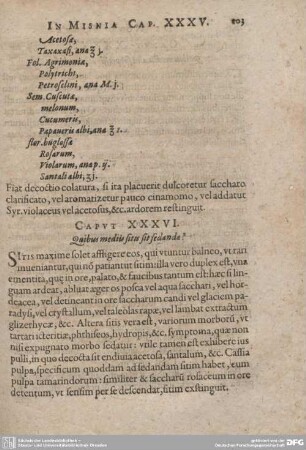 IN MISNIA CAP. XXXV. 103
Acetosæ,
Taxaxasi, ana ℥ j.
Fol. Agrimoniæ,
Polytrichi,
Petroselini, ana M. j.
Sem. Cuscutæ,
melonum,
Cucumeris,
Papaueris albi, ana ʒ 1.
flor. buglossæ
Rosarum,
Violarum, ana p. ij.
Santali albi, ʒ j.
Fiat decoctio colatura, si ita placuerit dulcoretur saccharo
clarificato, vel aromatizetur pauco cinamomo, vel addatur
Syr. violaceus vel acetosus, &c. ardorem restinguit.
CAPVT XXXVI.
Quibus mediis sitis sit sedanda?
SItis maxime solet affligere eos, qui vtuntur balneo, vt rari
inueniantur, qui nõ patiantur sitim: illa vero duplex est, vna
ementita, quæ in ore, palato, & faucibus tantum est hæc si lin-
guam ardeat, abluatæger os posca vel aqua sacchari, vel hor-
deacea, vel detineant in ore saccharum candi vel glaciem pa-
radysi, vel crystallum, vel taleolas rapæ, vel lambat extractum
glizerhycæ, &c. Altera sitis verà est, variorum morborũ, vt
tartari icteritiæ, phthiseos, hydropis, &c. symptoma, quæ non
nisi expugnato morbo sedatur: vtile tamen est exhibere ius
pulli, in quo decocta sit endiuia acetosa, santalum, &c. Cassia
pulpa, specificum quoddam ad sedandam sitim habet, cum
pulpa tamarindorum: similiter & saccharũ rosaceum in ore
detentum, vt sensim per se descendat, sitim exstinguit.